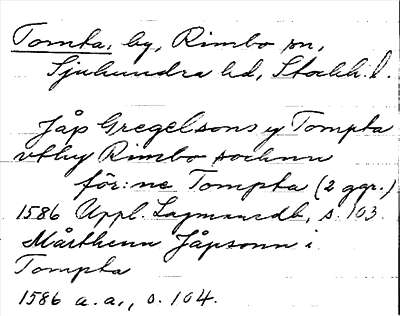 Tomta, by, Rimbo sn,
Sjuhundra hd, Stockh. l.
Jåp Gregelsons y Tompta
vthy Rimbo sochnn
för:ne Tompta (2 ggr.)
1586 Uppl. Lagmansdb, s. 103.
Mårthenn Jåpsonn i
Tompta
1586 a.a., s. 104.